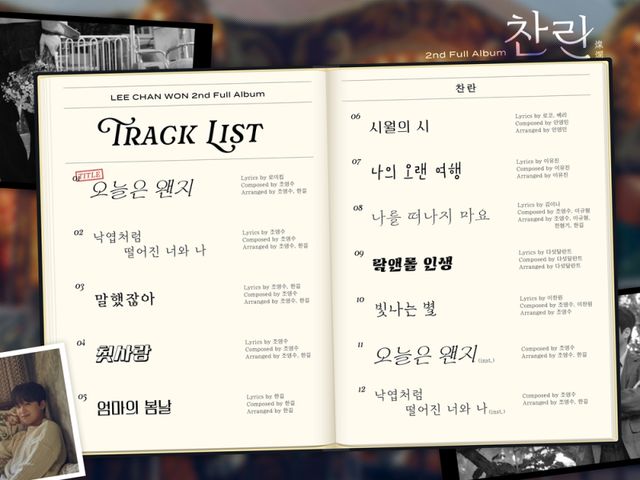 2nd Full Album 찬란 燦爛
LEE CHAN WON 2nd Full Album
TRACK LIST
01 TITLE
오늘은 왠지
Lyrics by 로이킴
Composed by 조영수
Arranged by 조영수, 한길
02 낙엽처럼
떨어진 너와 나
Lyrics by 조영수
Composed by 조영수
Arranged by 조영수, 한길
03 말했잖아
Lyrics by 조영수, 한길
Composed by 조영수, 한길
Arranged by 조영수, 한길
04 첫사랑
Lyrics by 조영수, 한길
Composed by 조영수, 한길
Arranged by 조영수, 한길
05 엄마의 봄날
Lyrics by 한길
Composed by 한길
Arranged by 한길
찬란
06 시월의 시
Lyrics by 로코, 베리
Composed by 안영민
Arranged by 안영민
07 나의 오랜 여행
Lyrics by 이유진
Composed by 이유진
Arranged by 이유진
08 나를 떠나지 마요
Lyrics by 김이나
Composed by 조영수, 이규형
Arranged by 조영수, 이규형,
한길
09 락앤롤 인생
Lyrics by 다섯달란트
Composed by 다섯달란트
Arranged by 다섯달란트
10 빛나는 별
Lyrics by 이찬원
Composed by 조영수, 이찬원
Arranged by 조영수
11 오늘은 왠지 (inst.)
Composed by 조영수
Arranged by 조영수, 한길
12 낙엽처럼
떨어진 너와 나 (inst.)
Composed by 조영수
Arranged by 조영수, 한길